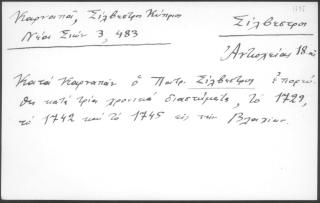 Καρναπᾶ, Σίλβεστρος Κύπριος
Νέα Σιών 3, 483
Σίλβεστρος
Ἀντιοχείας 18 αἰ.
Κατά Καρναπᾶν ὁ Πατρ. Σίλβεστρος ἐπορεύ
θη κατά τρία χρονικά διαστήματα, τό 1729,
τό 1742 καί τό 1745 εἰς τήν Βλαχίαν.